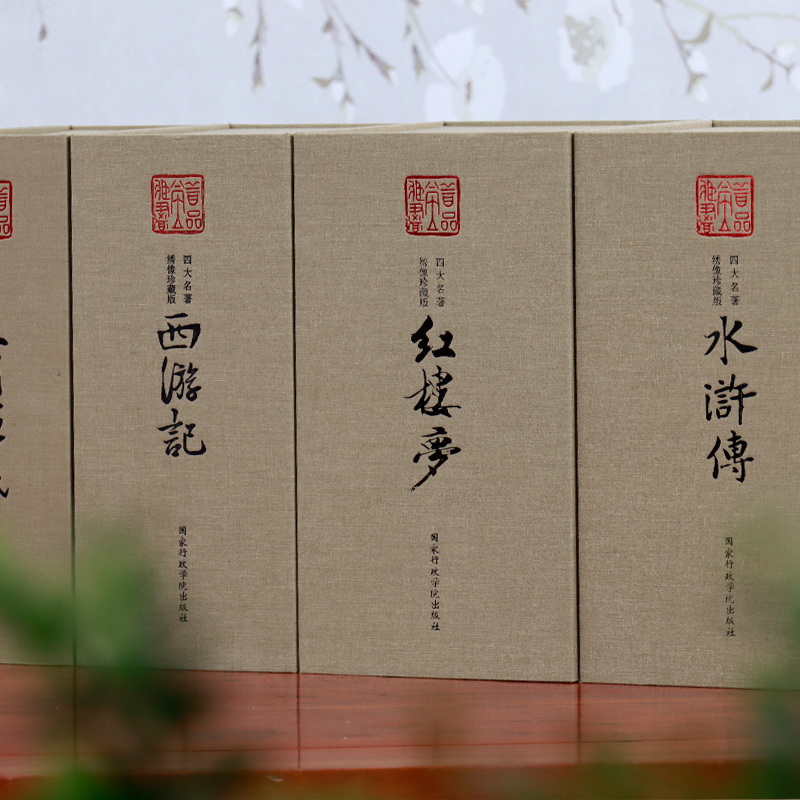 四大名著
绣像珍藏版
西游記
国家行政学院出版社
四大名著
绣像珍藏版
红樓夢
国家行政学院出版社
四大名著
绣像珍藏版
水滸傳
国家行政学院出版社